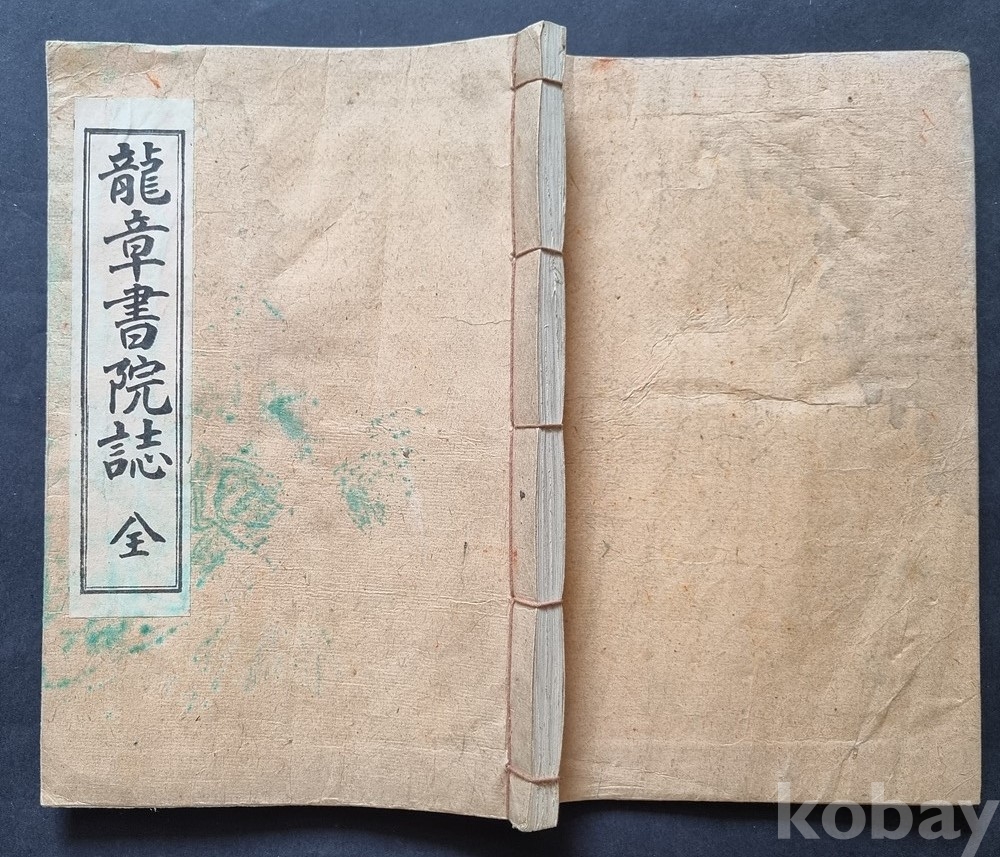 龍章書院誌 全
kobay